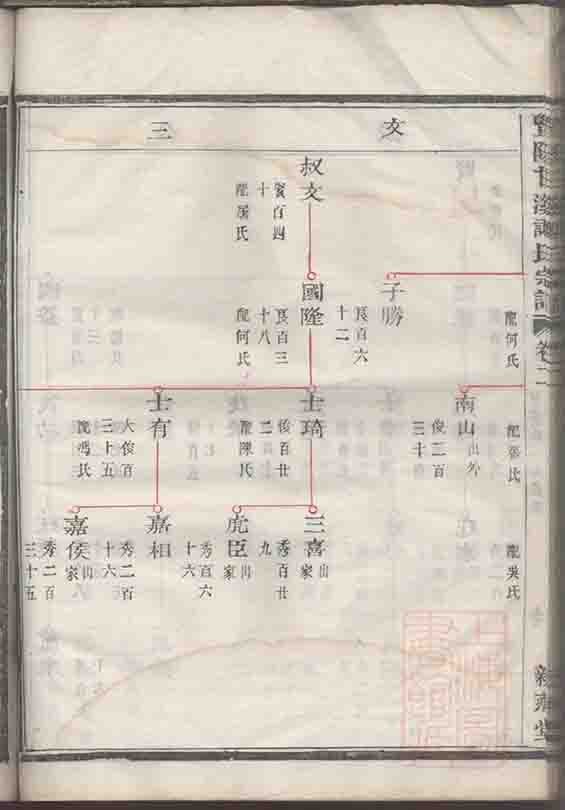 文
三
卷二
配何氏
配張氏
配吳氏
子勝
艮百六
十二
南山
出外
俊二百
三十六
叔文
賓百四
十
配屠氏
國隆
艮百三
十八
配何氏
士琦
俊百廿
配陳氏
三喜
出家
秀百廿
九
虎臣
出家
秀百六
十六
士有
大俊百
三十五
配馮氏
嘉相
秀二百
十六
嘉侯
出家
秀二百
三十五